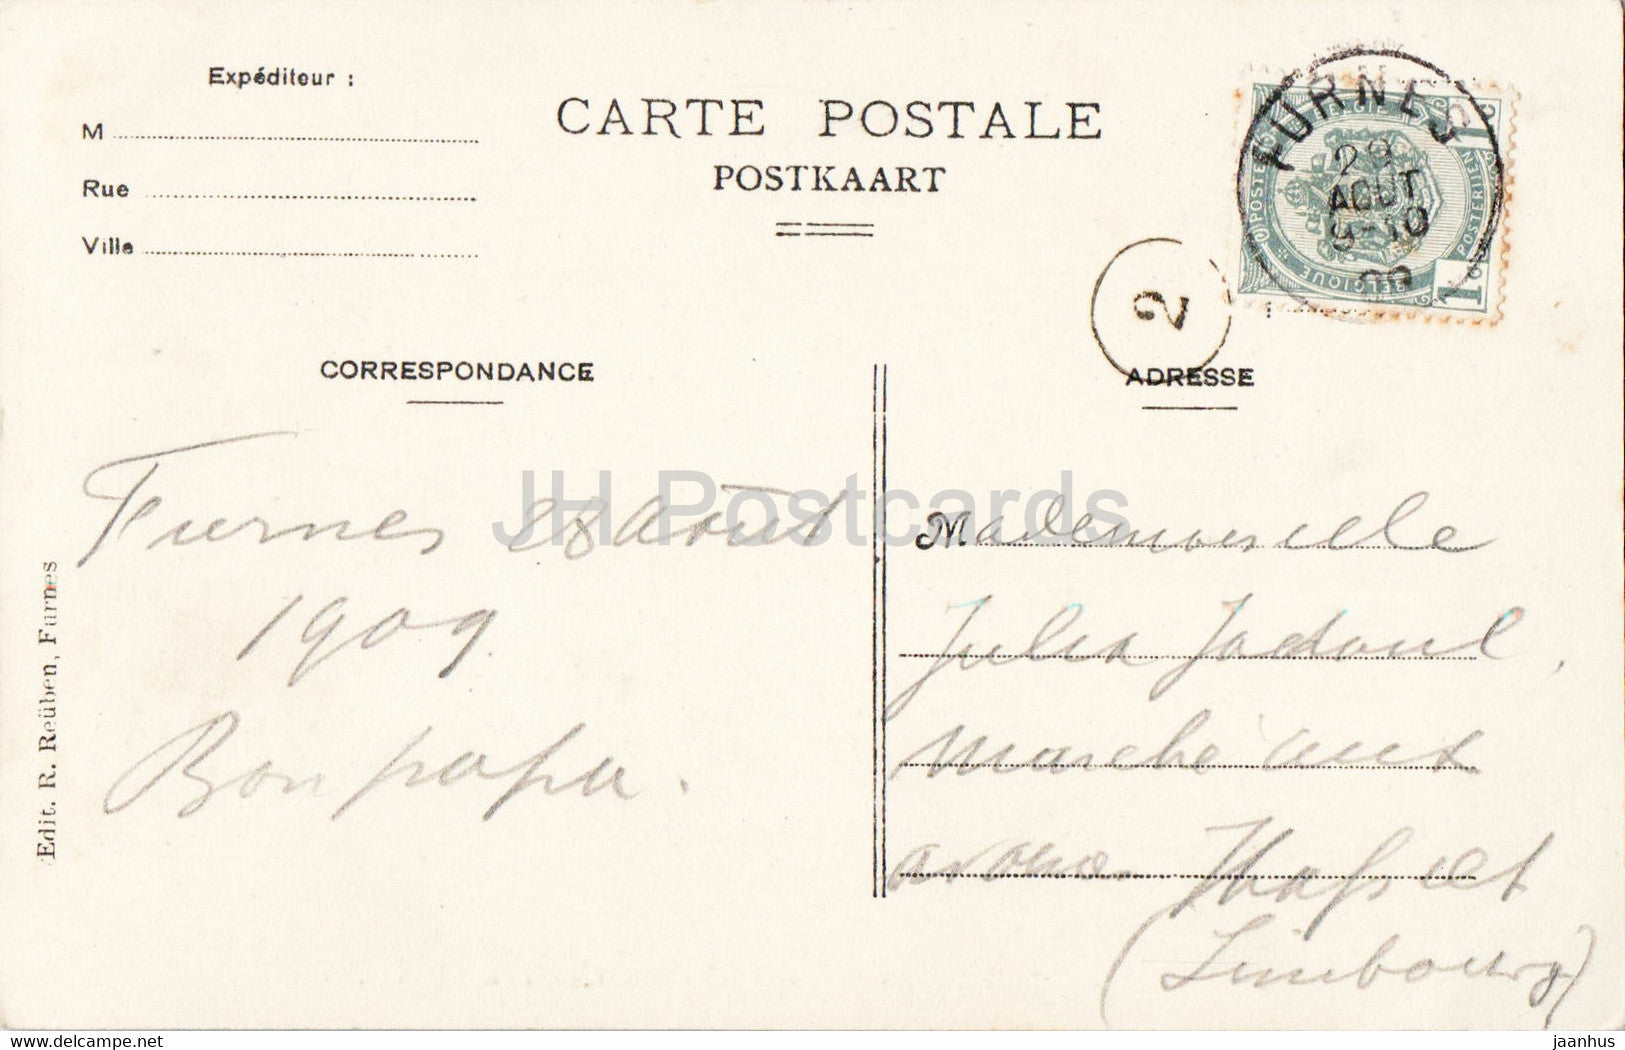 Expéditeur :
M
Rue
Ville
CARTE POSTALE
POSTKAART
FURNES
29
AOUT
9-10
09
POSTES
POSTERIJEN
BELGIQUE
1
1
2
CORRESPONDANCE
ADRESSE
Furnes 28 Août
1909
Bon papa.
Mademoiselle
Julia Jadoul,
Marché aux
avoines Hasselt
(Limbourg)
Edit. R. Reüben, Furnes
JH Postcards
hipstamp.com
jaanhus